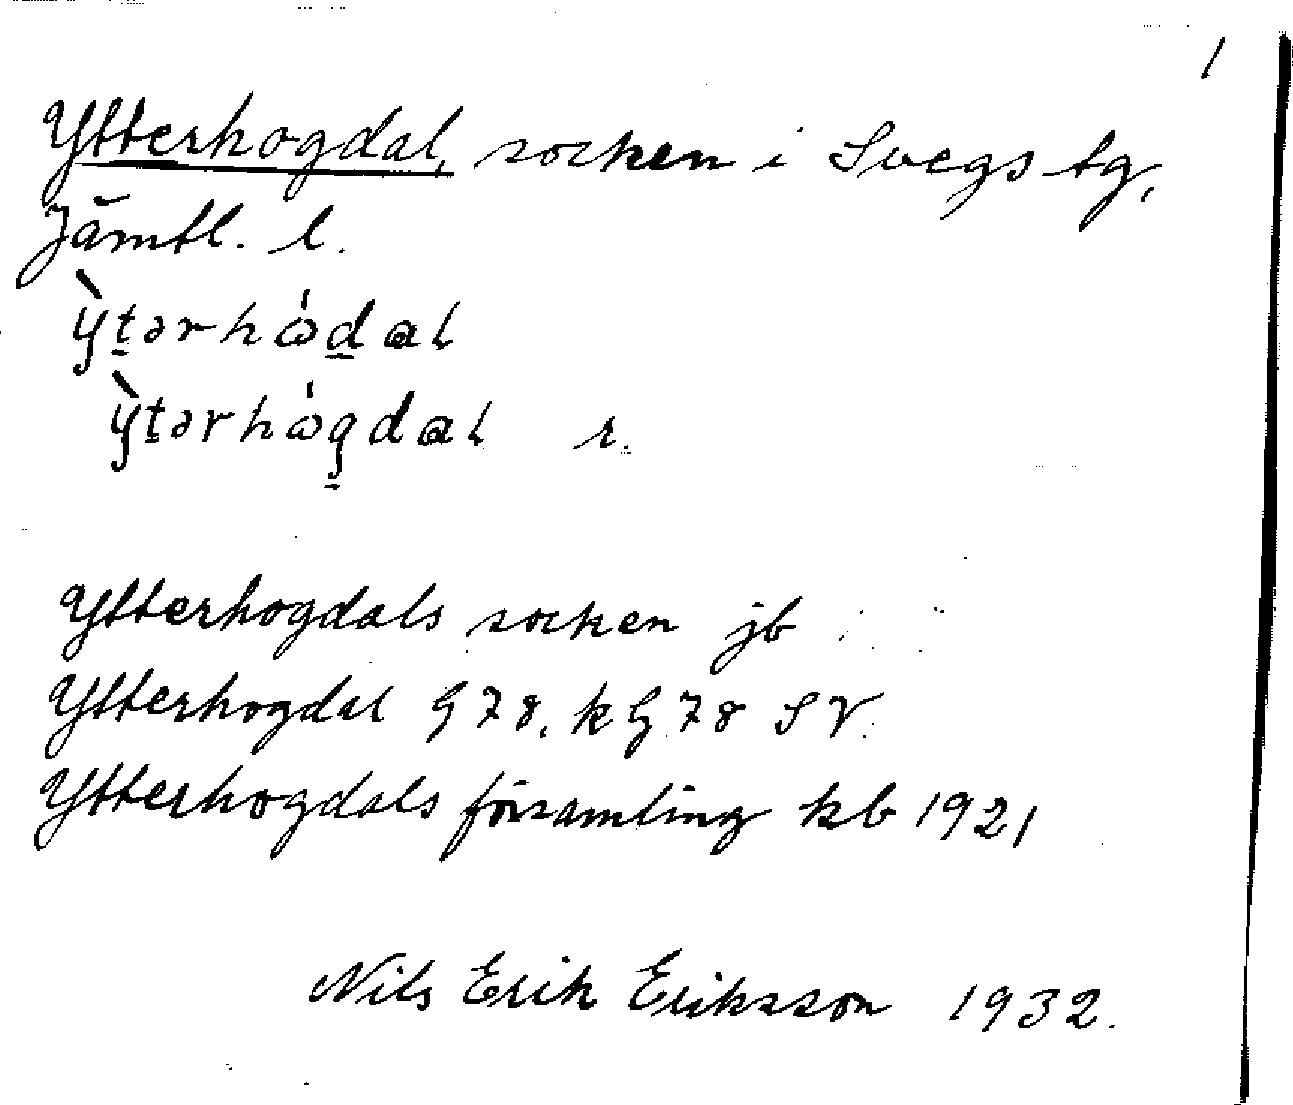 1
Ytterhogdal, socken i Svegs tg,
Jämtl. l.
ỳt̠ərhω̍d̠al
ỳt̠ərhω̍g̠dal r.
Ytterhogdals socken jb
Ytterhogdal G 78, k G 78 SV.
Ytterhogdals församling kb 1921
Nils Erik Eriksson 1932.